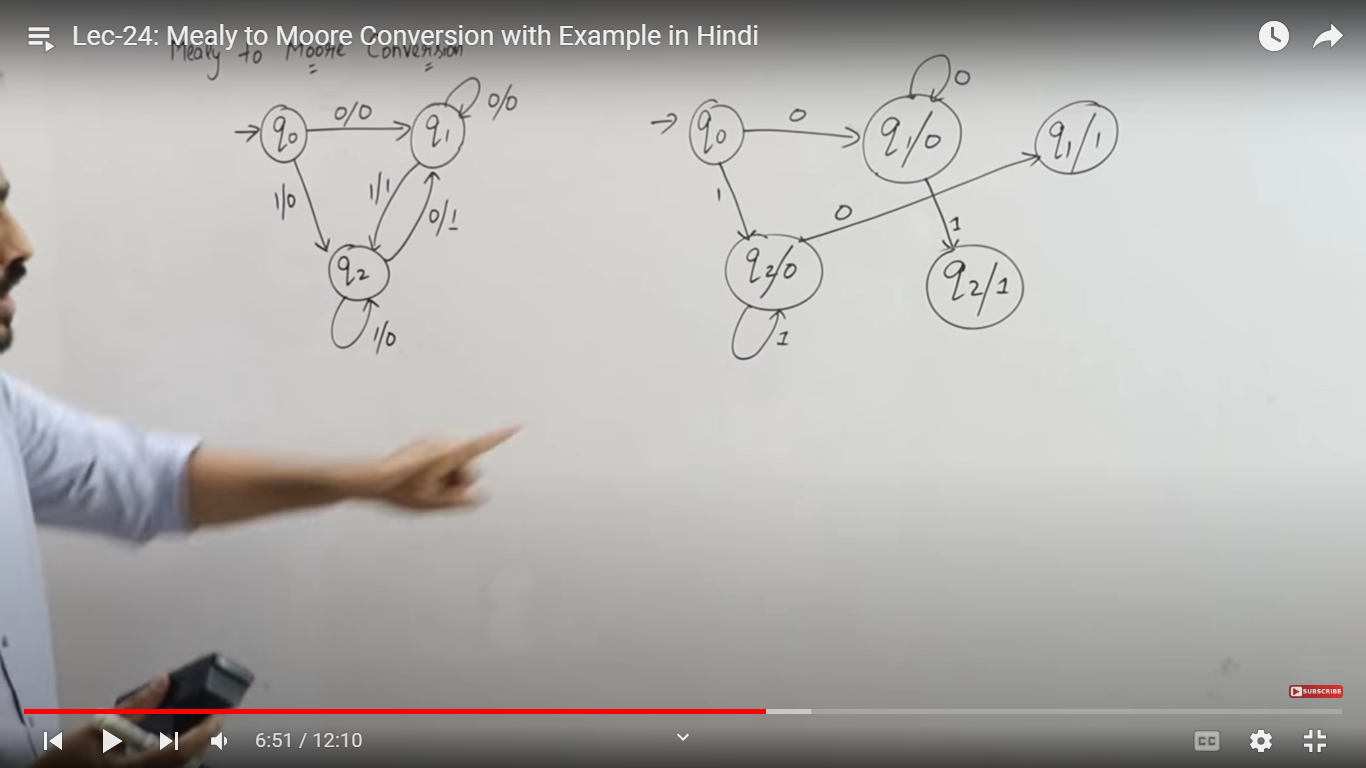 Lec-24: Mealy to Moore Conversion with Example in Hindi
Mealy to Moore Conversion
0/0
0/0
q0
q1
1/0
1/1
0/1
q2
1/0
0
q0
0
q1/0
q1/1
1
0
1
q2/0
q2/1
1
SUBSCRIBE
6:51 / 12:10
CC